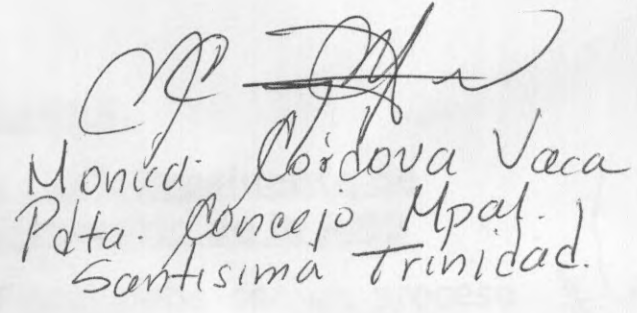 Monica Córdova Vaca
Pdta. Concejo Mpal.
Santisima Trinidad.